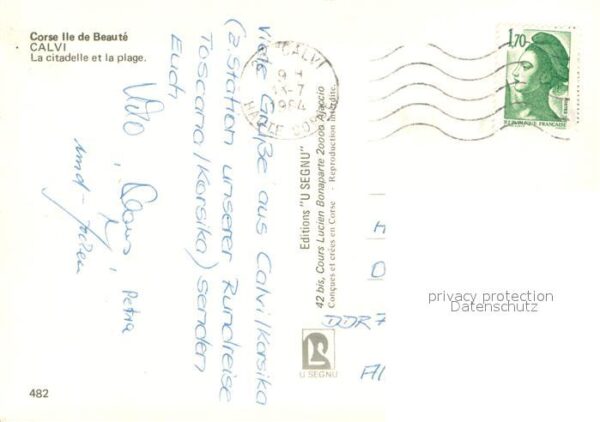 Corse Ile de Beauté
CALVI
La citadelle et la plage.
Viele Grüße aus Calvi/Korsika
(2. Station unserer Rundreise
Toscana/Korsika) senden
Euch
Klaus,
Petra
und
CALVI
9 H
13-7
1984
HAUTE CORSE
1,70
REPUBLIQUE FRANCAISE
Editions "U SEGNU"
42 bis, Cours Lucien Bonaparte 20000 Ajaccio
Conçues et créées en Corse - Reproduction interdite.
DDR 7
privacy protection
Datenschutz
U SEGNU
482